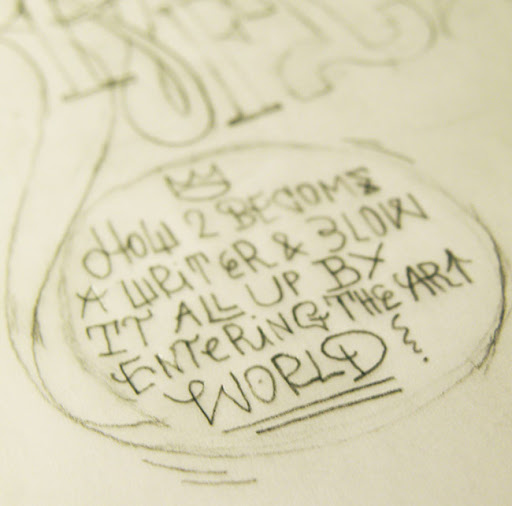 HOW 2 BECOME
A WRITER & BLOW
IT ALL UP BY
ENTERING THE ART
WORLD